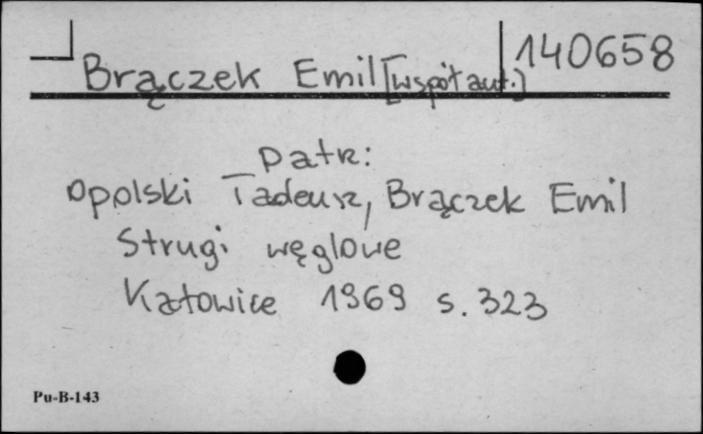 140658
Brączek Emil [współaut.]
Patrz:
Opolski Tadeusz, Brączek Emil
Strugi węglowe
Katowice 1969 s. 323
Pu-B-143